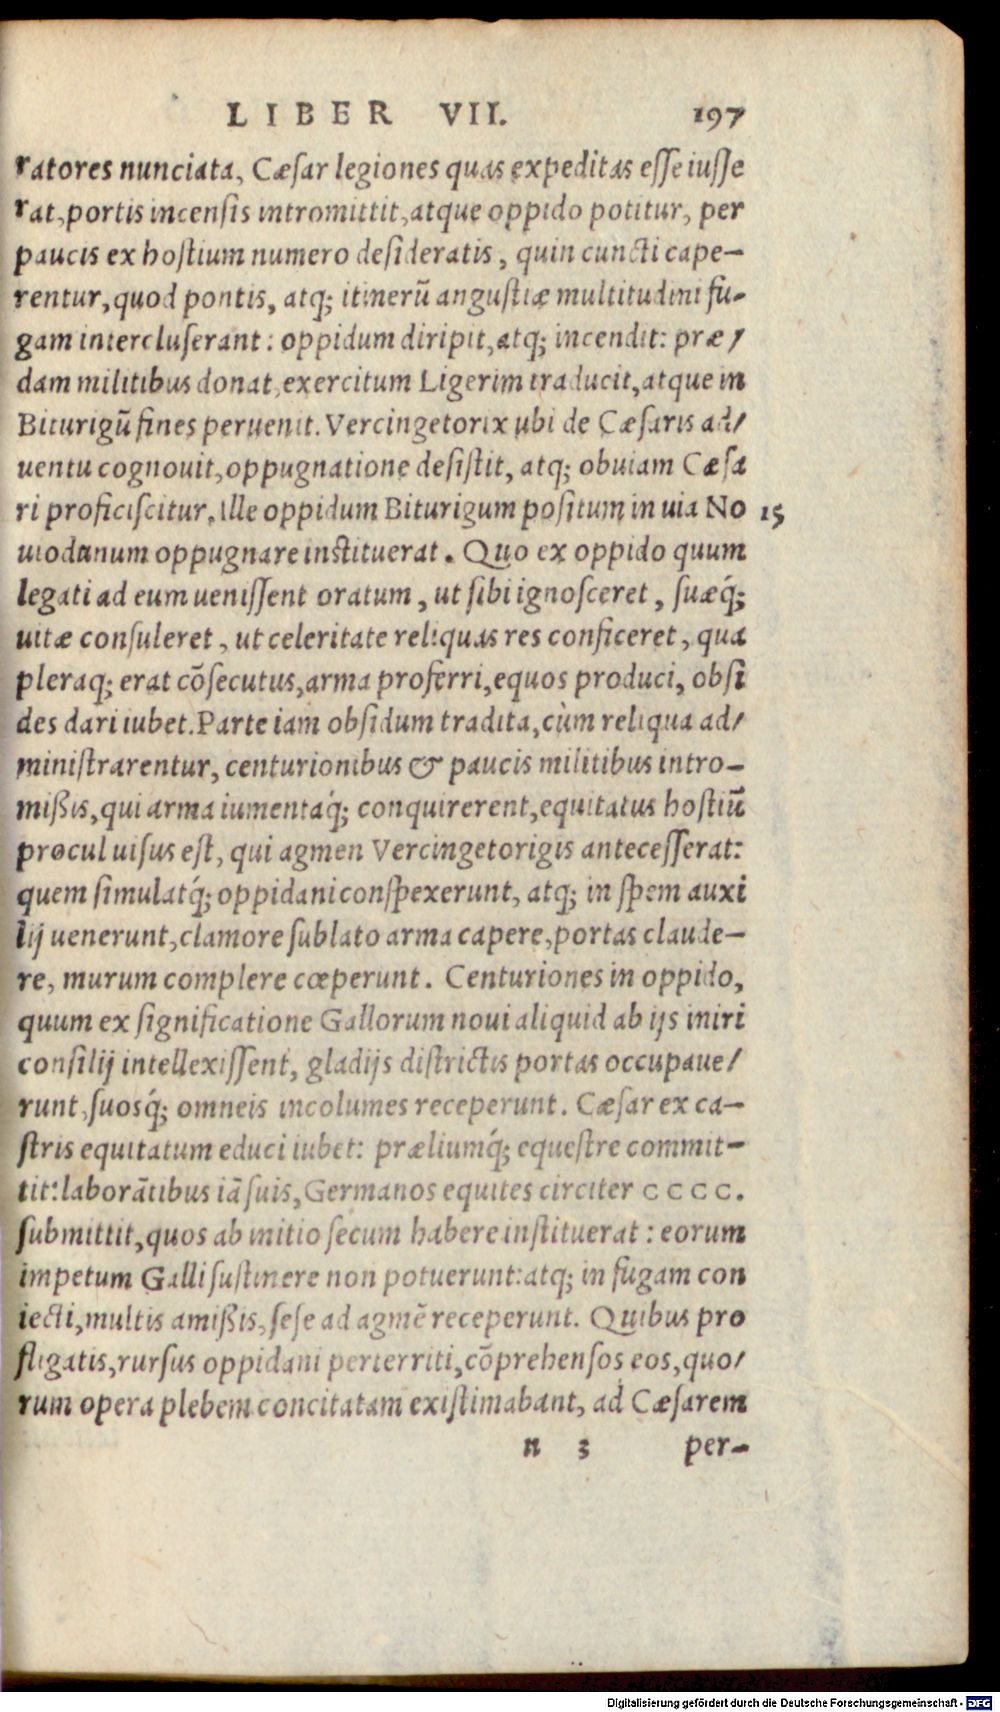 LIBER VII. 197
ratores nunciata, Cæſar legiones quas expeditas eſſe iuſſe
rat, portis incenſis intromittit, atque oppido potitur, per
paucis ex hoſtium numero deſideratis, quin cuncti cape-
rentur, quod pontis, atq; itinerũ anguſtiæ multitudini fu-
gam intercluſerant: oppidum diripit, atq; incendit: præ/
dam militibus donat, exercitum Ligerim traducit, atque in
Biturigũ fines peruenit. Vercingetorix ubi de Cæſaris ad/
uentu cognouit, oppugnatione deſiſtit, atq; obuiam Cæſa
ri proficiſcitur. Ille oppidum Biturigum poſitum in uia No 15
uiodunum oppugnare inſtituerat. Quo ex oppido quum
legati ad eum ueniſſent oratum, ut ſibi ignoſceret, ſuæq́;
uitæ conſuleret, ut celeritate reliquas res conficeret, qua
pleraq; erat cõſecutus, arma proferri, equos produci, obſi
des dari iubet. Parte iam obſidum tradita, cùm reliqua ad/
miniſtrarentur, centurionibus & paucis militibus intro-
mißis, qui arma iumentaq́; conquirerent, equitatus hoſtiũ
procul uiſus eſt, qui agmen Vercingetorigis anteceſſerat:
quem ſimulatq́; oppidani conſpexerunt, atq; in ſpem auxi
lij uenerunt, clamore ſublato arma capere, portas claude-
re, murum complere cœperunt. Centuriones in oppido,
quum ex ſignificatione Gallorum noui aliquid ab ijs iniri
conſilij intellexiſſent, gladijs diſtrictis portas occupaue/
runt, ſuosq́; omneis incolumes receperunt. Cæſar ex ca-
ſtris equitatum educi iubet: præliumq́; equeſtre commit-
tit: laborãtibus iã ſuis, Germanos equites circiter CCCC.
ſubmittit, quos ab initio ſecum habere inſtituerat: eorum
impetum Galli ſuſtinere non potuerunt: atq; in fugam con
iecti, multis amißis, ſeſe ad agmẽ receperunt. Quibus pro
fligatis, rurſus oppidani perterriti, cõprehenſos eos, quo/
rum opera plebem concitatam exiſtimabant, ad Cæſarem
n 3 per-
Digitalisierung gefördert durch die Deutsche Forschungsgemeinschaft - DFG